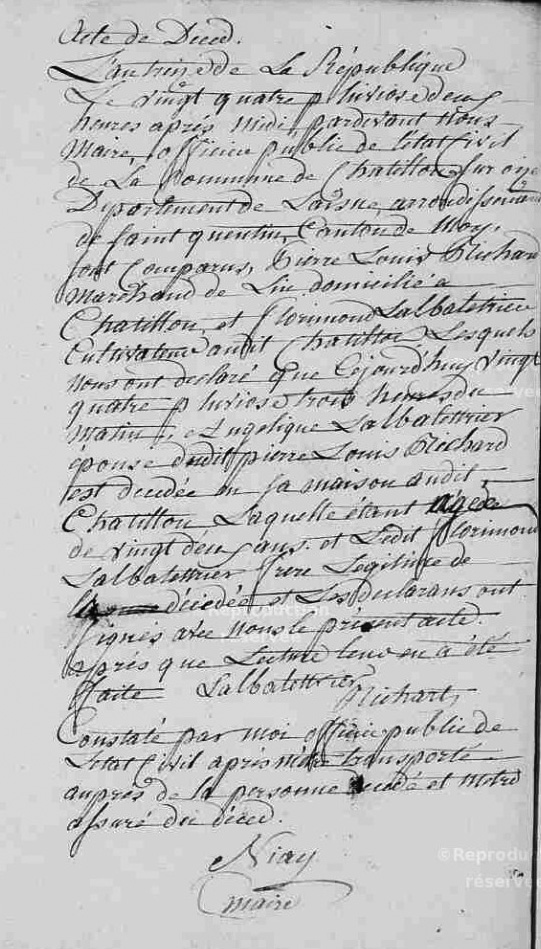 Acte de Deced.
L'an treize de La République
Le vingt quatre pluviose deux
heures aprés midi, pardevant Nous
Maire, officier public de l'état Civil
de La Commune de Chatillon Sur oise
Département de Laisne, arrondissement
de Saint quentin, Canton de Moy,
sont Comparus, Pierre Louis Richard
Marchand de Lin domicilié a
Chatillon, et florimond Lalbalettrier
Cultivateur audit Chatillon, Lesquels
nous ont déclaré que Cejourd'huy vingt
quatre pluviose trois heures du
matin, Angelique Lalbalettrier
épouse dudit pierre Louis Richard
est decedée en sa maison audit
Chatillon Laquelle étant agée
de vingt deux ans. et Ledit florimond
Lalbalettrier frere Legitime de
décedée et Les declarans ont
signés avec Nous le présent acte.
aprés que Lecture leur en a été
faite Lalbalettrier
Richart
Constaté par moi officier public de
L'état Civil aprés m'être transporté
aupres de la personne decedé et m'etre
assuré du deced.
Niay
maire
© Reproduction
réservée
Reproduction
réservée
© Reproduct
réservée